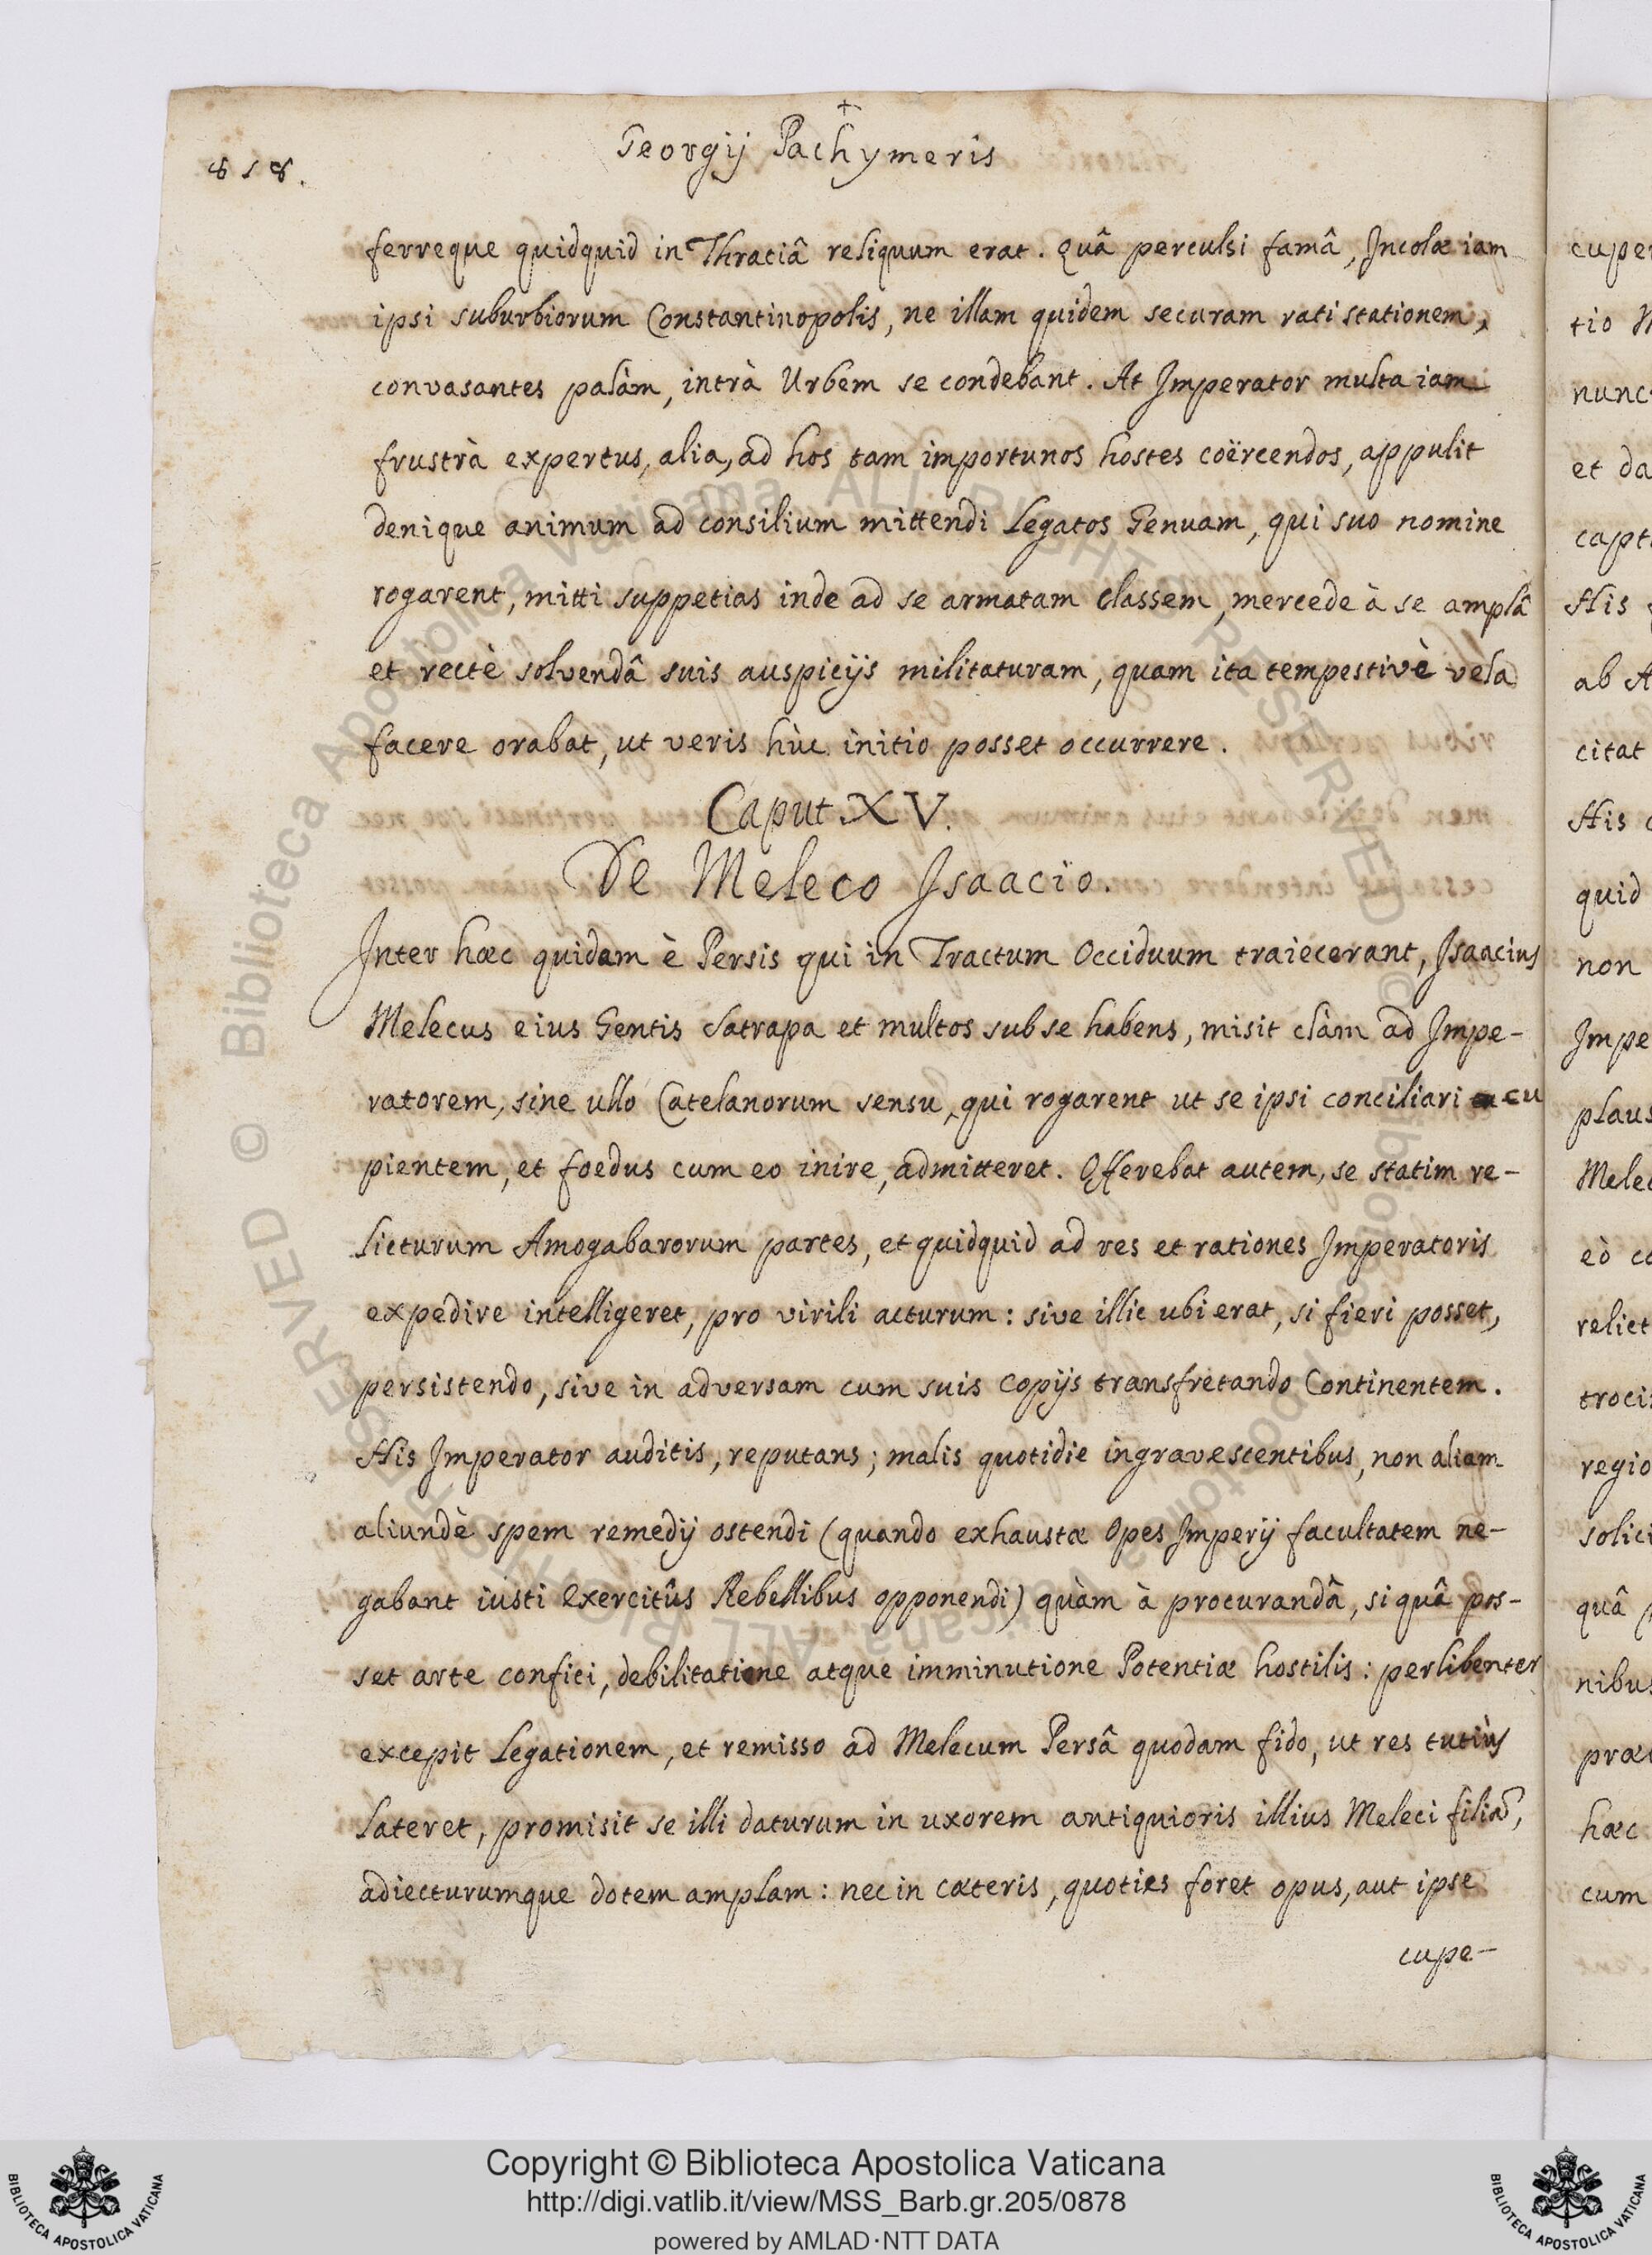 818.
Georgij Pachymeris
ferreque quidquid in Thraciâ reliquum erat. Quâ perculsi famâ, Incolæ iam
ipsi suburbiorum Constantinopolis, ne illam quidem securam rati stationem,
convasantes palàm, intrà Urbem se condebant. At Imperator multa iam
frustrà expertus, alia, ad hos tam importunos hostes coërcendos, appulit
denique animum ad consilium mittendi Legatos Genuam, qui suo nomine
rogarent, mitti suppetias inde ad se armatam Classem, mercede à se amplâ
et rectè solvendâ suis auspicijs militaturam, quam ita tempestivè vela
facere orabat, ut veris hùc initio posset occurrere.
Caput XV.
De Meleco Isaacïo.
Inter hæc quidam è Persis qui in Tractum Occiduum traiecerant, Isaacius
Melecus eius Gentis Satrapa et multos sub se habens, misit clàm ad Impe-
ratorem, sine ullo Catelanorum sensu, qui rogarent ut se ipsi conciliari cu
pientem, et foedus cum eo inire, admitteret. Offerebat autem, se statim re-
licturum Amogabarorum partes, et quidquid ad res et rationes Imperatoris
expedire intelligeret, pro virili acturum: sive illic ubi erat, si fieri posset,
persistendo, sive in adversam cum suis copijs transfretando Continentem.
His Imperator auditis, reputans; malis quotidie ingravescentibus, non aliam
aliundè spem remedij ostendi (quando exhaustæ Opes Imperij facultatem ne-
gabant iusti exercitûs Rebellibus opponendi) quàm à procurandâ, si quâ pos-
set arte confici, debilitatione atque imminutione Potentiæ hostilis: perlibenter
excepit Legationem, et remisso ad Melecum Persâ quodam fido, ut res tutiùs
lateret, promisit se illi daturum in uxorem antiquioris illius Meleci filiã,
adiecturumque dotem amplam: nec in cæteris, quoties foret opus, aut ipse
cupe-
cuper
tio
nunc
et da
capt
His
ab A
citat
His
quid
non
Impe
plaus
Melec
eò co
relict
troci
regio
solici
quâ
nibus
præ
hæc
cum
© Biblioteca Apostolica Vaticana ALL RIGHTS RESERVED © Biblioteca Apostolica Vaticana ALL RIGHTS RESERVED
Copyright © Biblioteca Apostolica Vaticana
http://digi.vatlib.it/view/MSS_Barb.gr.205/0878
powered by AMLAD·NTT DATA
BIBLIOTECA APOSTOLICA VATICANA
BIBLIOTECA APOSTOLICA VATICANA